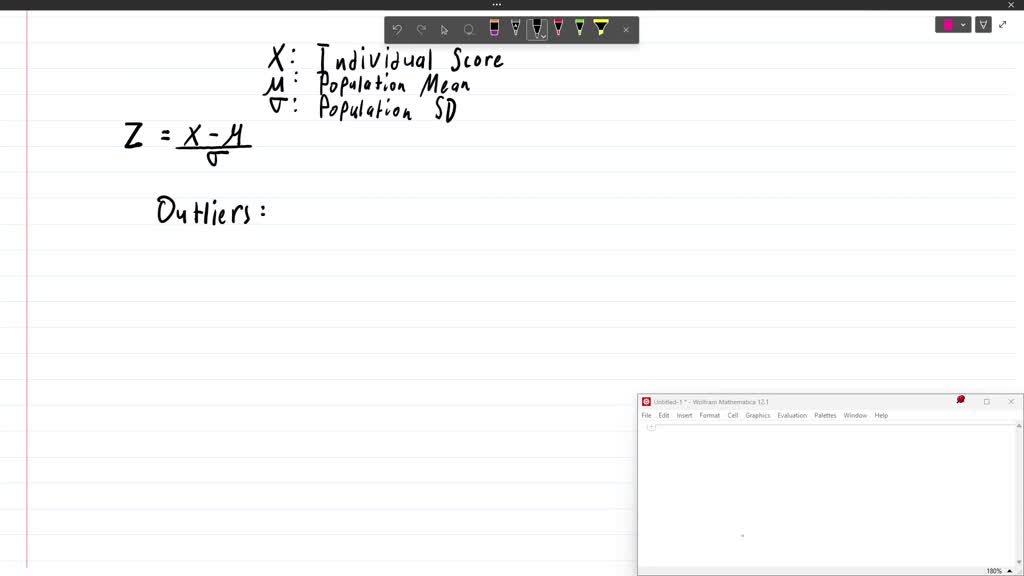 X: Individual Score
μ: Population Mean
σ: Population SD
Z = X - μ / σ
Outliers:
Untitled-1 * - Wolfram Mathematica 12.1
File Edit Insert Format Cell Graphics Evaluation Palettes Window Help
180%